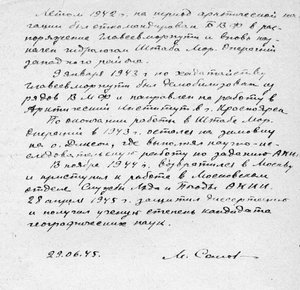 Летом 1942 г. на период арктической на-
гации был откомандирован БВФ в рас-
поряжение Главсевморпути и вновь на-
значен гидрологом Штаба Мор. Операций
западного района.
9 января 1943 г. по ходатайству
Главсевморпути был демобилизован из
рядов В.М.Ф и направлен на работу в
Арктический Институт в г. Красноярск.
По окончании работы в Штабе Мор.
Операций в 1943 г. остался на зимовку
на о. Диксон, где выполнял научно-ис-
следовательскую работу по заданию АНИИ.
В ноябре 1944 г. возвратился в Москву
и приступил к работе в Московском
отделе Службы Льда и Погоды АНИИ.
28 апреля 1945 г. защитил диссертацию
и получил ученую степень кандидата
географических наук.
29.06.45. М. Сомов